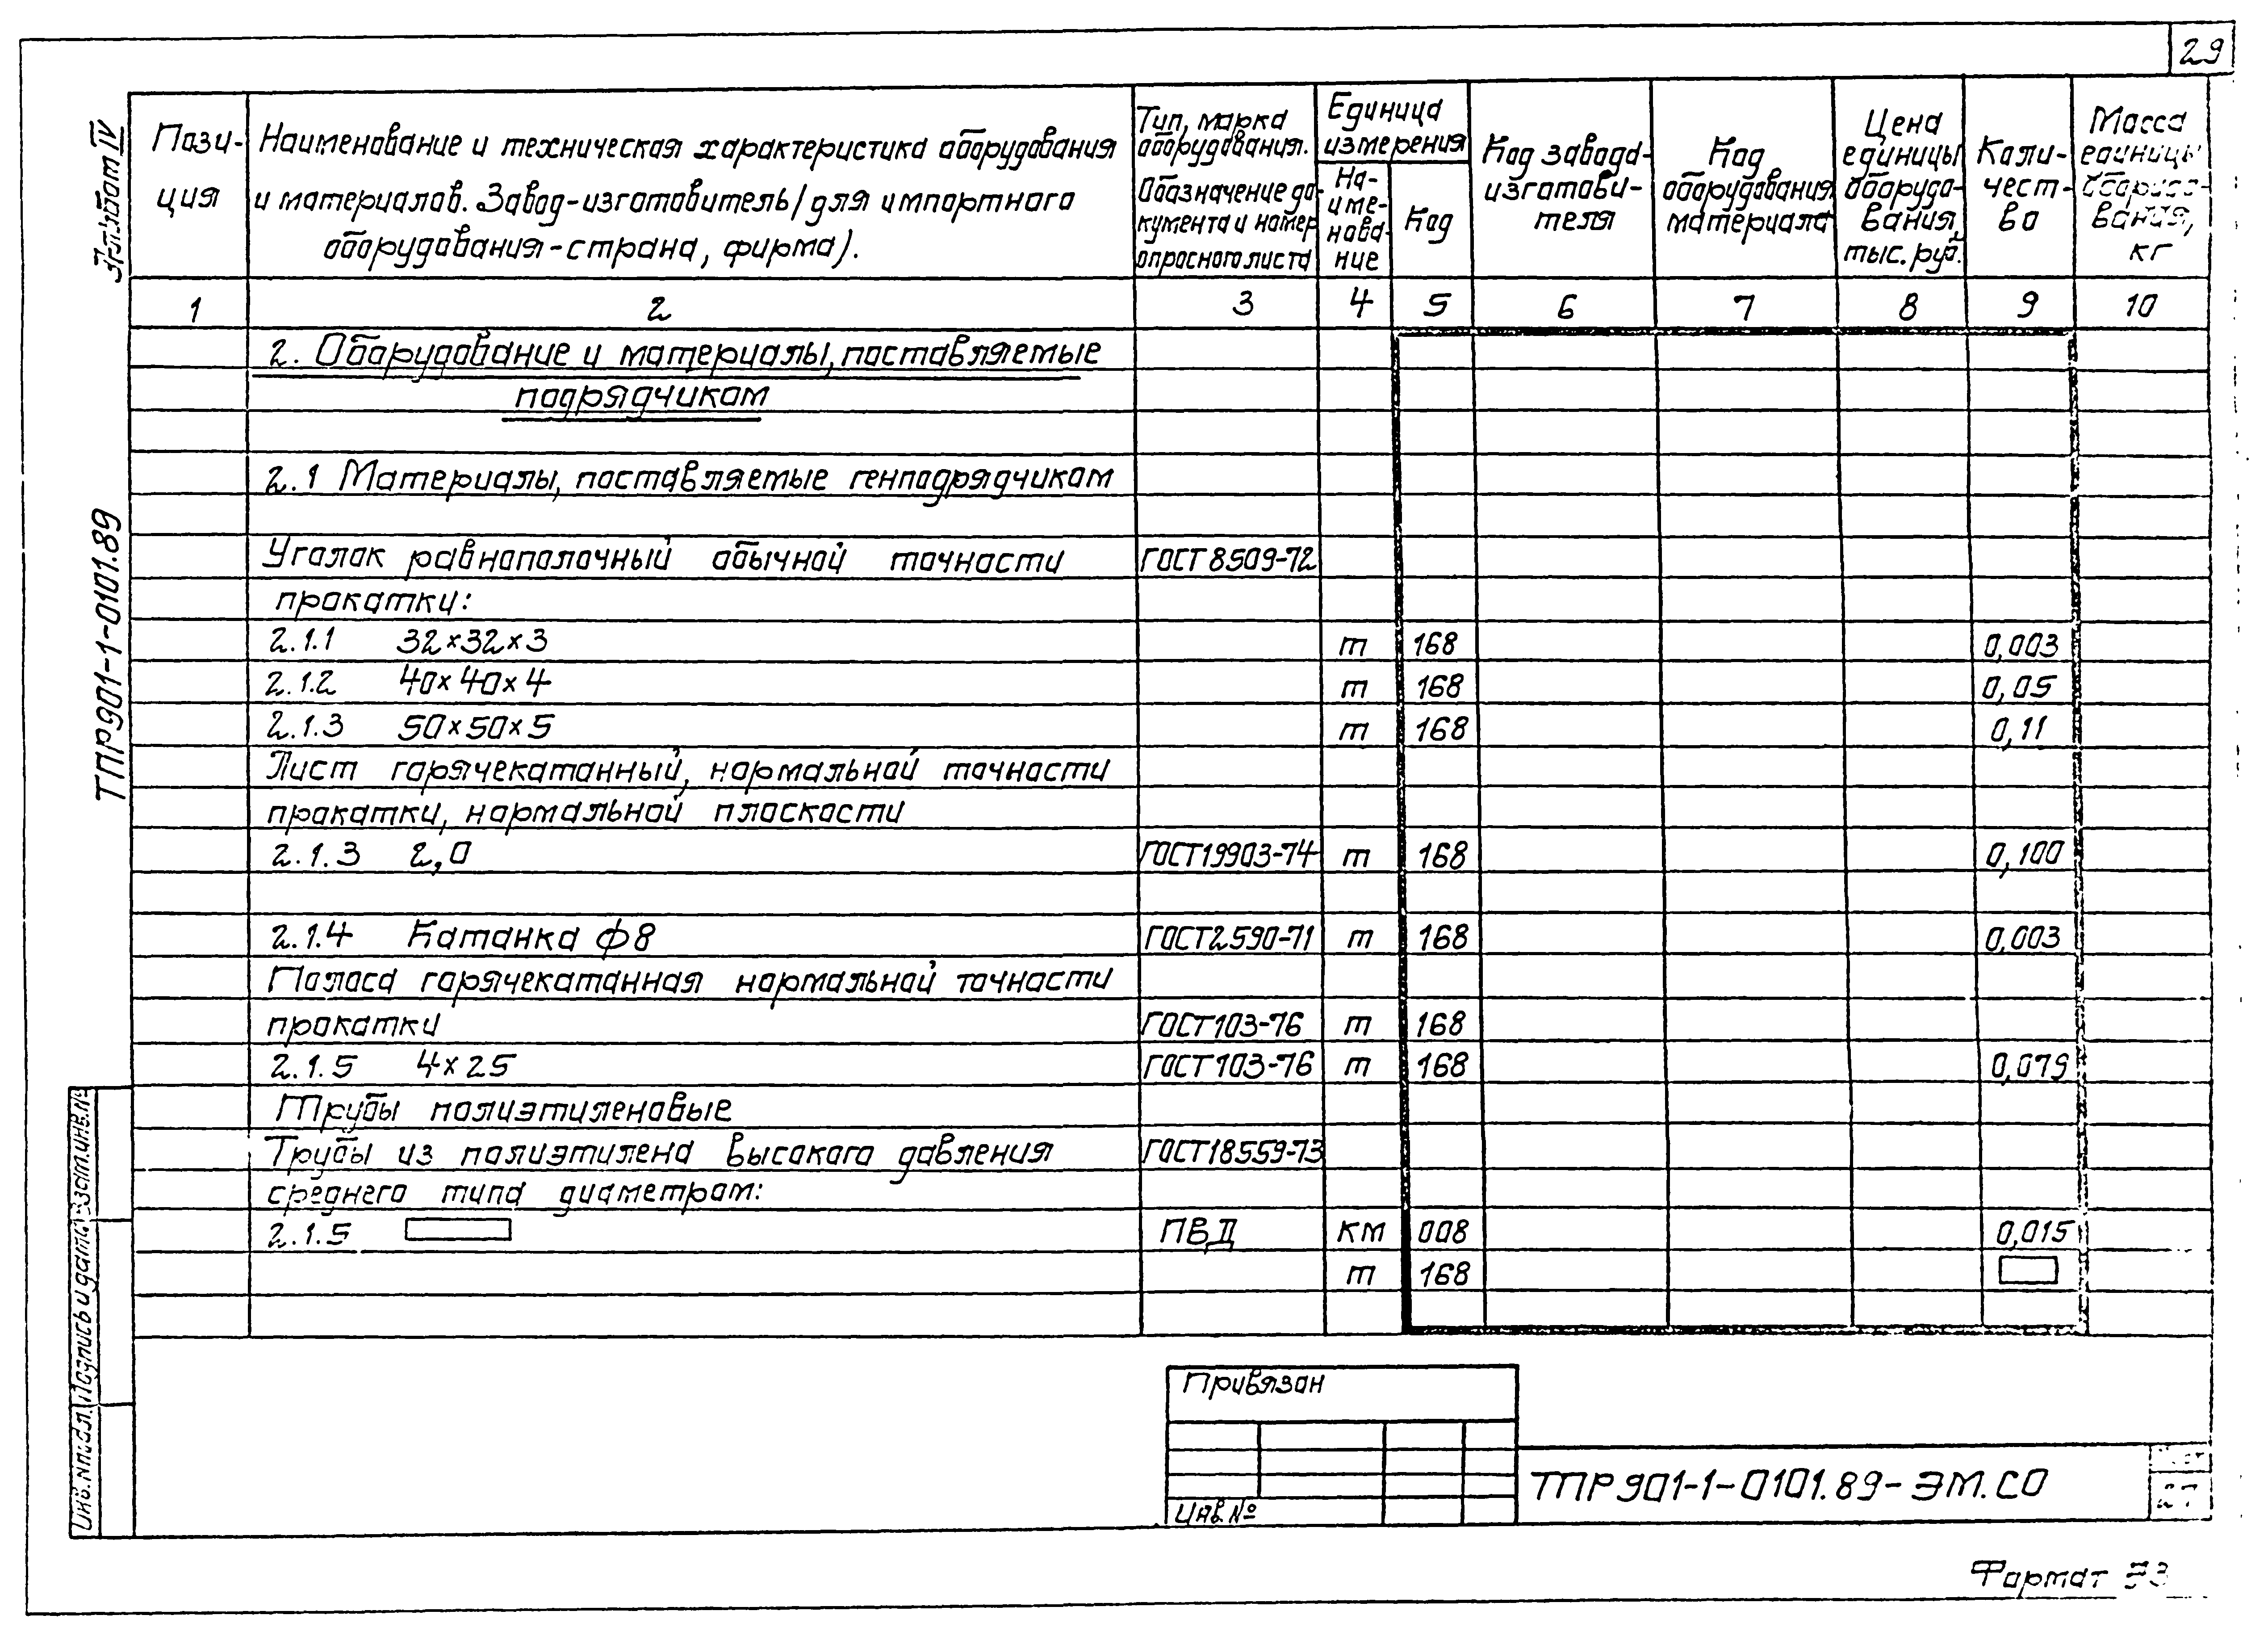 29
Альбом IV
ТПР901-1-0101.89
Пози-
ция
Наименование и техническая характеристика оборудования
и материалов. Завод-изготовитель/для импортного
оборудования-страна, фирма).
Тип, марка
оборудования.
Обозначение до-
кумента и номер
опросного листа
Единица
измерения
На-
име-
нова-
ние
Код
Код завода-
изготови-
теля
Код
оборудования
материала
Цена
единицы
оборудо-
вания,
тыс. руб.
Коли-
чест-
во
Масса
единицы
оборудо-
вания,
кг
1 2 3 4 5 6 7 8 9 10
2. Оборудование и материалы, поставляемые
подрядчиком
2.1 Материалы, поставляемые генподрядчиком
Уголок равнополочный обычной точности ГОСТ 8509-72
прокатки:
2.1.1 32×32×3 т 168 0,003
2.1.2 40×40×4 т 168 0,05
2.1.3 50×50×5 т 168 0,11
Лист горячекатанный, нормальной точности
прокатки, нормальной плоскости
2.1.3 2,0 ГОСТ19903-74 т 168 0,100
2.1.4 Катанка ф8 ГОСТ2590-71 т 168 0,003
Полоса горячекатанная нормальной точности
прокатки ГОСТ103-76 т 168
2.1.5 4×25 ГОСТ103-76 т 168 0,079
Трубы полиэтиленовые
Трубы из полиэтилена высокого давления ГОСТ18559-73
среднего типа диаметром:
2.1.5 ПВД км 008 0,015
т 168
Взам.инв.№
Подпись и дата
Инв.№подл.
Привязан
Инв.№
ТПР901-1-0101.89-ЭМ.СО
Лист
27
Формат